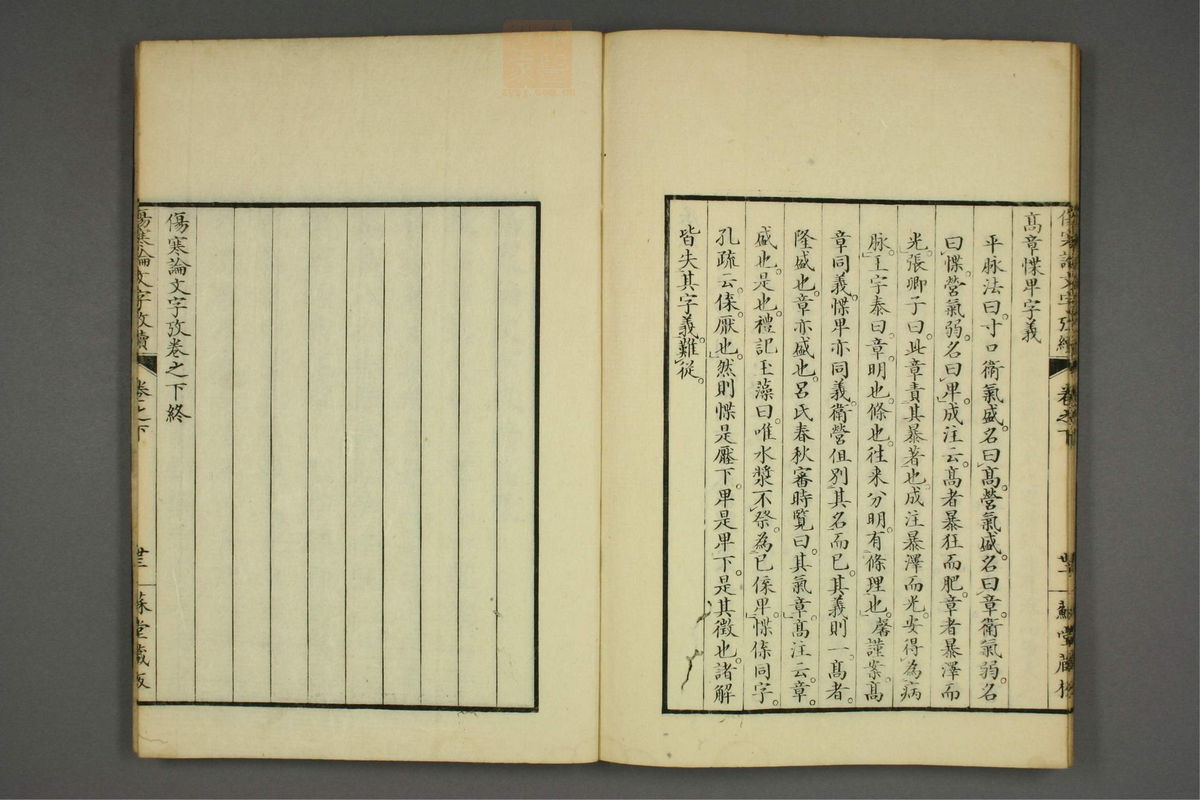 高章惵卑字義
平脉法曰。寸口衛氣盛。名曰高。營氣盛。名曰章。衛氣弱。名
曰惵。營氣弱。名曰卑。成注云。高者暴狂而肥。章者暴澤而
光。張卿子曰。此章責其暴著也。成注暴澤而光。安得為病
脉。王字泰曰。章。明也。條也。往来分明。有條理也。馨謹案。高
章同義。惵卑亦同義。衛營但別其名而已。其義則一。高者。
隆盛也。章亦盛也。呂氏春秋審時覽曰。其氣章。高注云。章。
盛也。是也。禮記玉藻曰。唯水漿不祭。為已傫卑。惵傫同字。
孔疏云。傫。厭也。然則惵是壓下。卑是卑下。是其徵也。諸解
皆失其字義。難從。
傷寒論文字攷卷之下終
傷寒論文字攷續
卷之下
卅三
蘇堂藏板